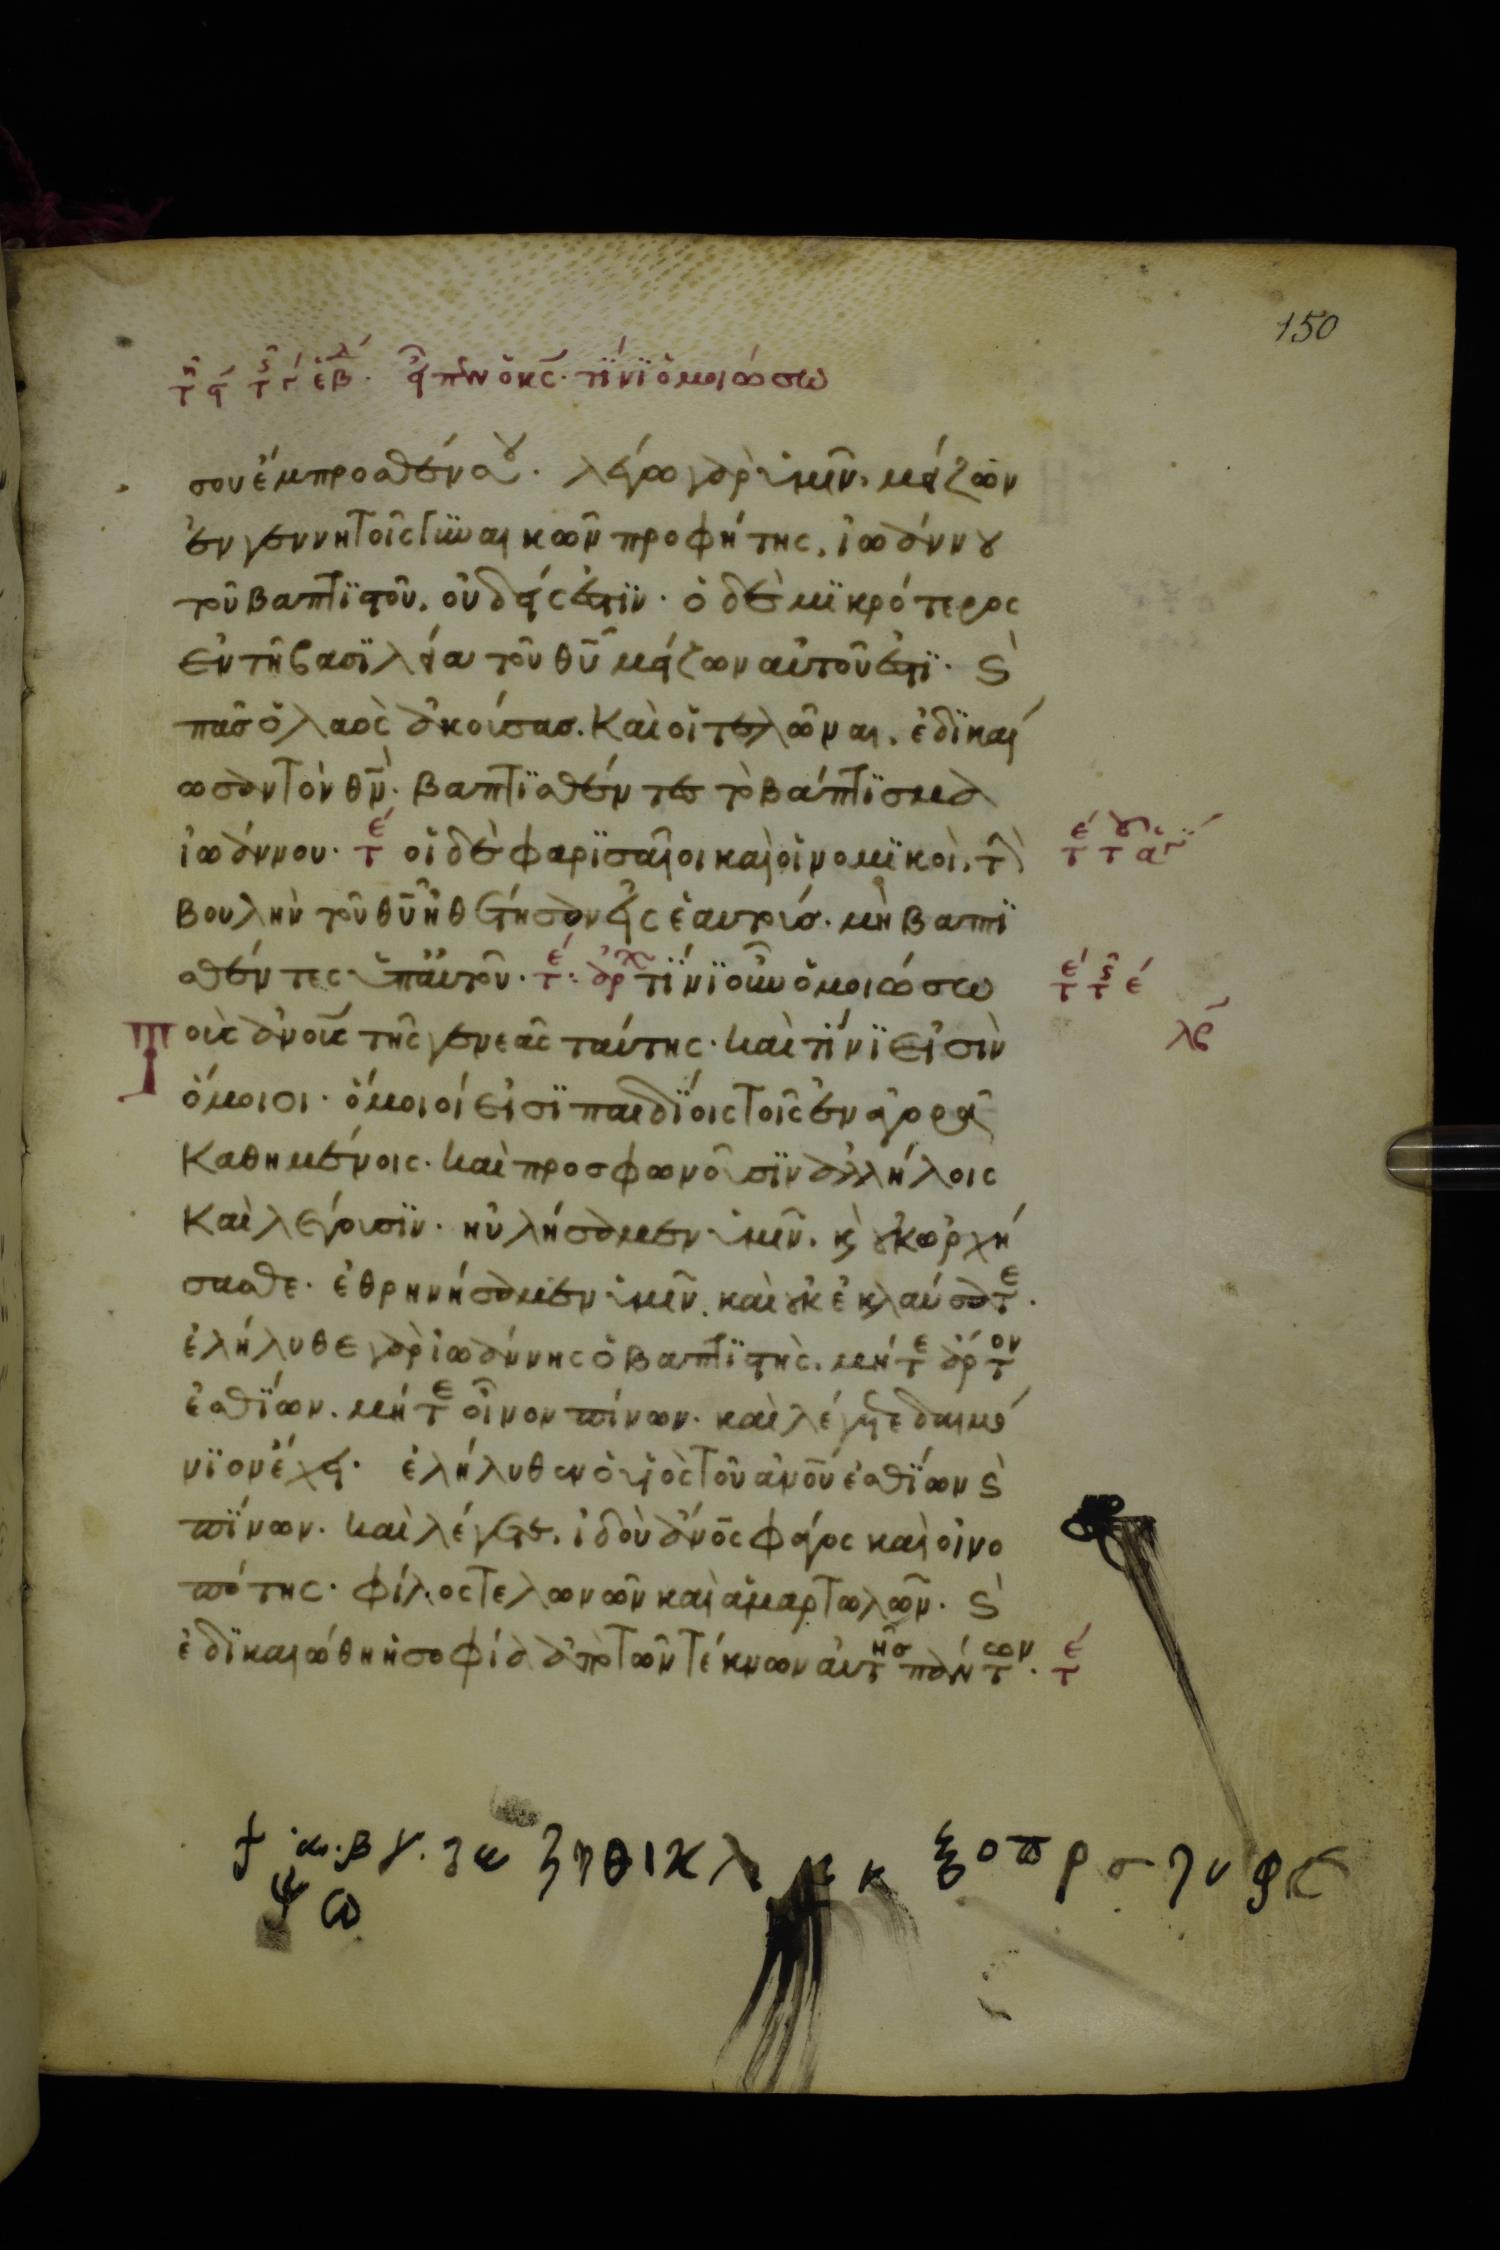 150
εἶπεν ὁ κς· τίνι ὁμοιώσω
σου ἔμπροσθέν σου· λέγω γὰρ ὑμῖν, μείζων
ἐν γεννητοῖς γυναικῶν προφήτης, ἰωάννου
τοῦ βαπτϊστοῦ, οὐδείς ἐστϊν· ὁ δὲ μϊκρότερος
ἐν τῆ βασϊλεία τοῦ θῦ μείζων αὐτοῦ ἐστϊ· ϗ
πᾶσ ὁ λαὸς ἀκούσασ. καὶ οἱ τελῶναι, ἐδϊκαί
ωσαν τὸν θν̄· βαπτϊσθέντες τὸ βάπτϊσμα
ἰωάννου· τέ οἱ δὲ φαρϊσαῖοι καὶ οἱ νομϊκοὶ, τὴν
βουλὴν τοῦ θῦ ἠθέτησαν εἰς ἑαυτούσ· μὴ βαπτϊ
σθέντες ὑπ' αὐτοῦ· τέ· ἀρχ τίνϊ οὖν ὁμοιώσω
τοὺς ἀνοὺς τῆς γενεᾶς ταύτης· καὶ τίνϊ εἰσὶν
ὅμοιοι· ὅμοιοί εἰσϊ παιδΐοις τοῖς ἐν ἀγορᾶ
καθημένοις· καὶ προσφωνοῦσϊν ἀλλήλοις
καὶ λέγουσϊν· ηὐλήσαμεν ὑμῖν, ϗ οὐκ ὠρχή
σασθε· ἐθρηνήσαμεν ὑμῖν, καὶ οὐκ ἐκλαύσατε·
ἐλήλυθε γὰρ ἰωάννης ὁ βαπτϊστὴς, μήτε ἄρτον
ἐσθΐων, μήτε οἶνον πίνων· καὶ λέγετε δαιμό
νϊον ἔχει· ἐλήλυθεν ὁ υἱὸς τοῦ ἀνοῦ ἐσθΐων ϗ
πΐνων· καὶ λέγετε, ἰδοὺ ἀνος φάγος καὶ οἰνο
πότης· φίλος τελωνῶν καὶ ἁμαρτωλῶν· ϗ
ἐδϊκαιώθη ἡ σοφία ἀπὸ τῶν τέκνων αὐτῆσ πάντων· τέ
α· β γ. ζ η θ ι κ λ ξ ο π ρ σ τ υ φ
ψ ω